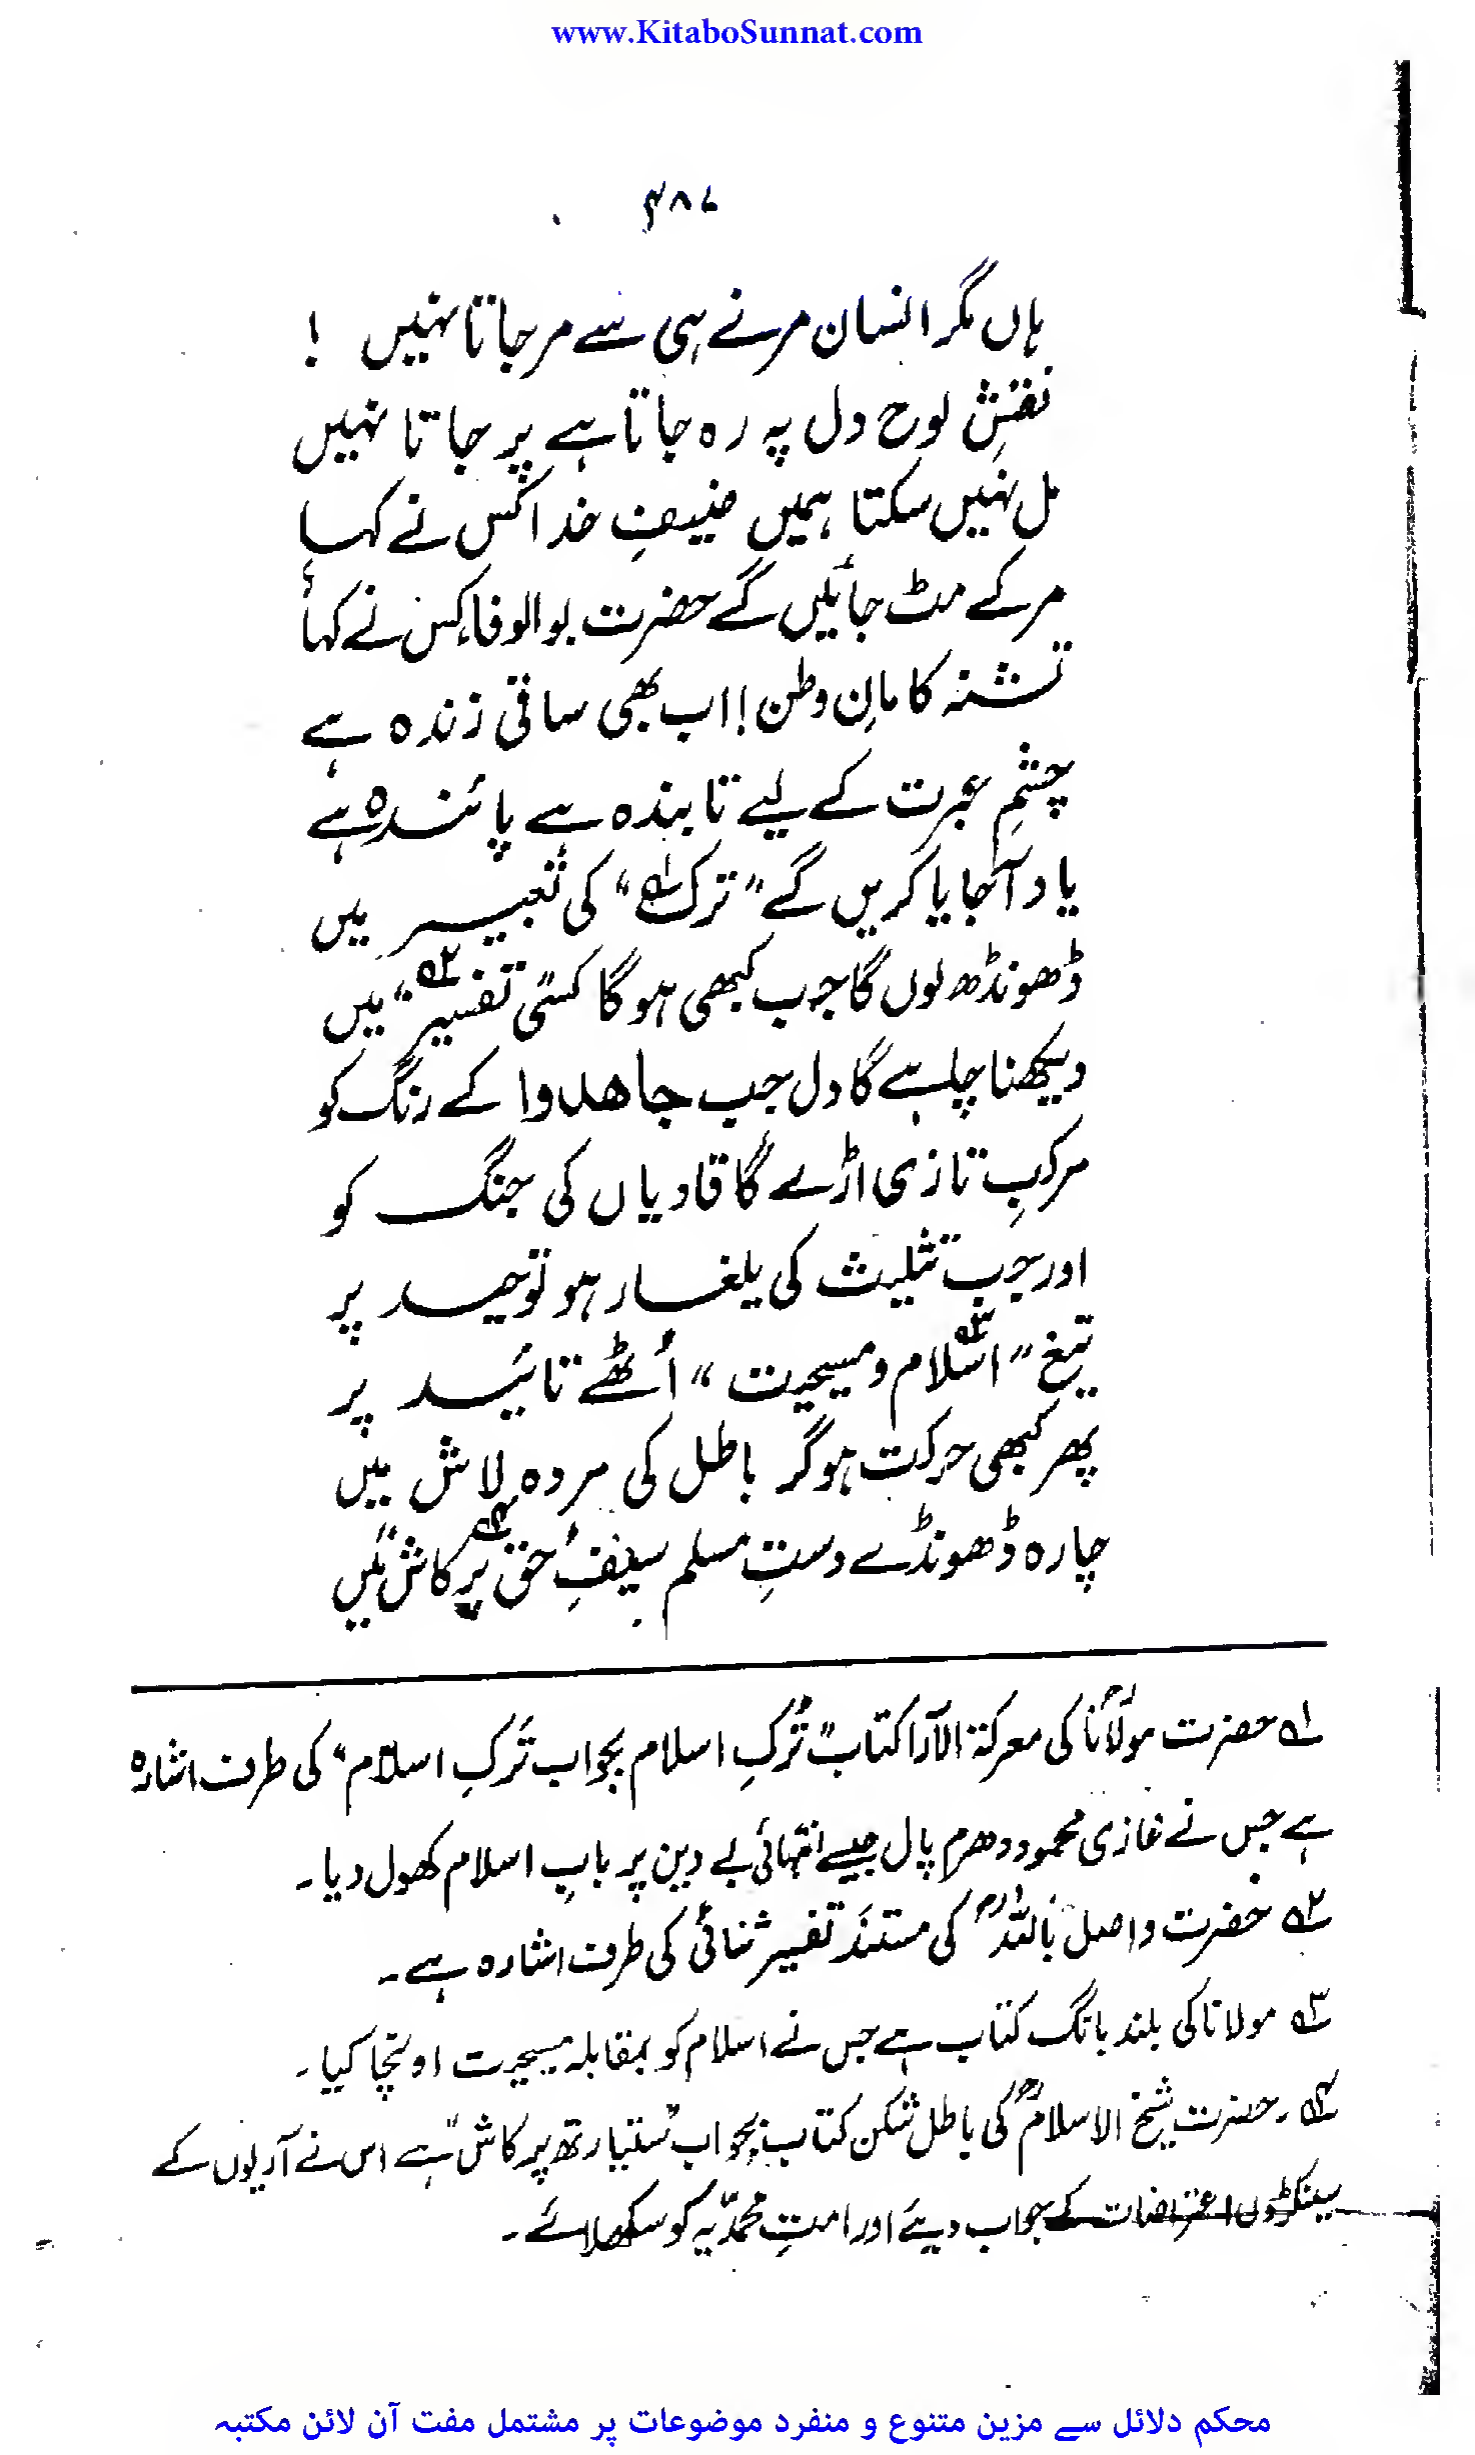 www.KitaboSunnat.com
۴۸۷
ہاں مگر انسان مرنے ہی سے مر جاتا نہیں !
نقشِ لوح دل پہ رہ جاتا ہے پر جاتا نہیں
مل نہیں سکتا ہمیں ضیفِ خدا کس نے کہا
مر کے مٹ جائیں گے حضرت بوالوفا کس نے کہا
تشنہ کامانِ وطن! اب بھی ساقی زندہ ہے
چشمِ عبرت کے لیے تابندہ ہے پائندہ ہے
یاد آجایا کریں گے "ترک۱ؔ" کی تعبیر میں
ڈھونڈھ لوں گا جب کبھی ہوگا کسی "تفسیر۲ؔ" میں
دیکھنا چاہے گا دل جب جاھدوا کے رنگ کو
مرکبِ تازی اڑے گا قادیاں کی جنگ کو
اور جب تثلیث کی یلغار ہو توحید پر
تیغ "اسلام۳ؔ و مسیحیت" اُٹھے تائید پر
پھر کبھی حرکت ہو گر باطل کی مردہ لاش میں
چارہ ڈھونڈے دستِ مسلم سیفِ "حق پر۴ؔکاش" میں
۱ؔ حضرت مولاناؒ کی معرکۃ الآرا کتاب "تُرکِ اسلام بجواب تَرکِ اسلام" کی طرف اشارہ
ہے جس نے غازی محمود دھرم پال جیسے انتہائی بے دین پر بابِ اسلام کھول دیا۔
۲ؔ حضرت واصل باللہؒ کی مستند تفسیر ثنائی کی طرف اشارہ ہے۔
۳ؔ مولانا کی بلند بانگ کتاب ہے جس نے اسلام کو بمقابلہ مسیحیت اونچا کیا۔
۴ؔ۔ حضرت شیخ الاسلامؒ کی باطل شکن کتاب بجواب "ستیارتھ پرکاش" ہے اس نے آریوں کے
سینکڑوں اعتراضات کے جواب دیئے اور امتِ محمدؐیہ کو سکھلائے۔
محکم دلائل سے مزین متنوع و منفرد موضوعات پر مشتمل مفت آن لائن مکتبہ